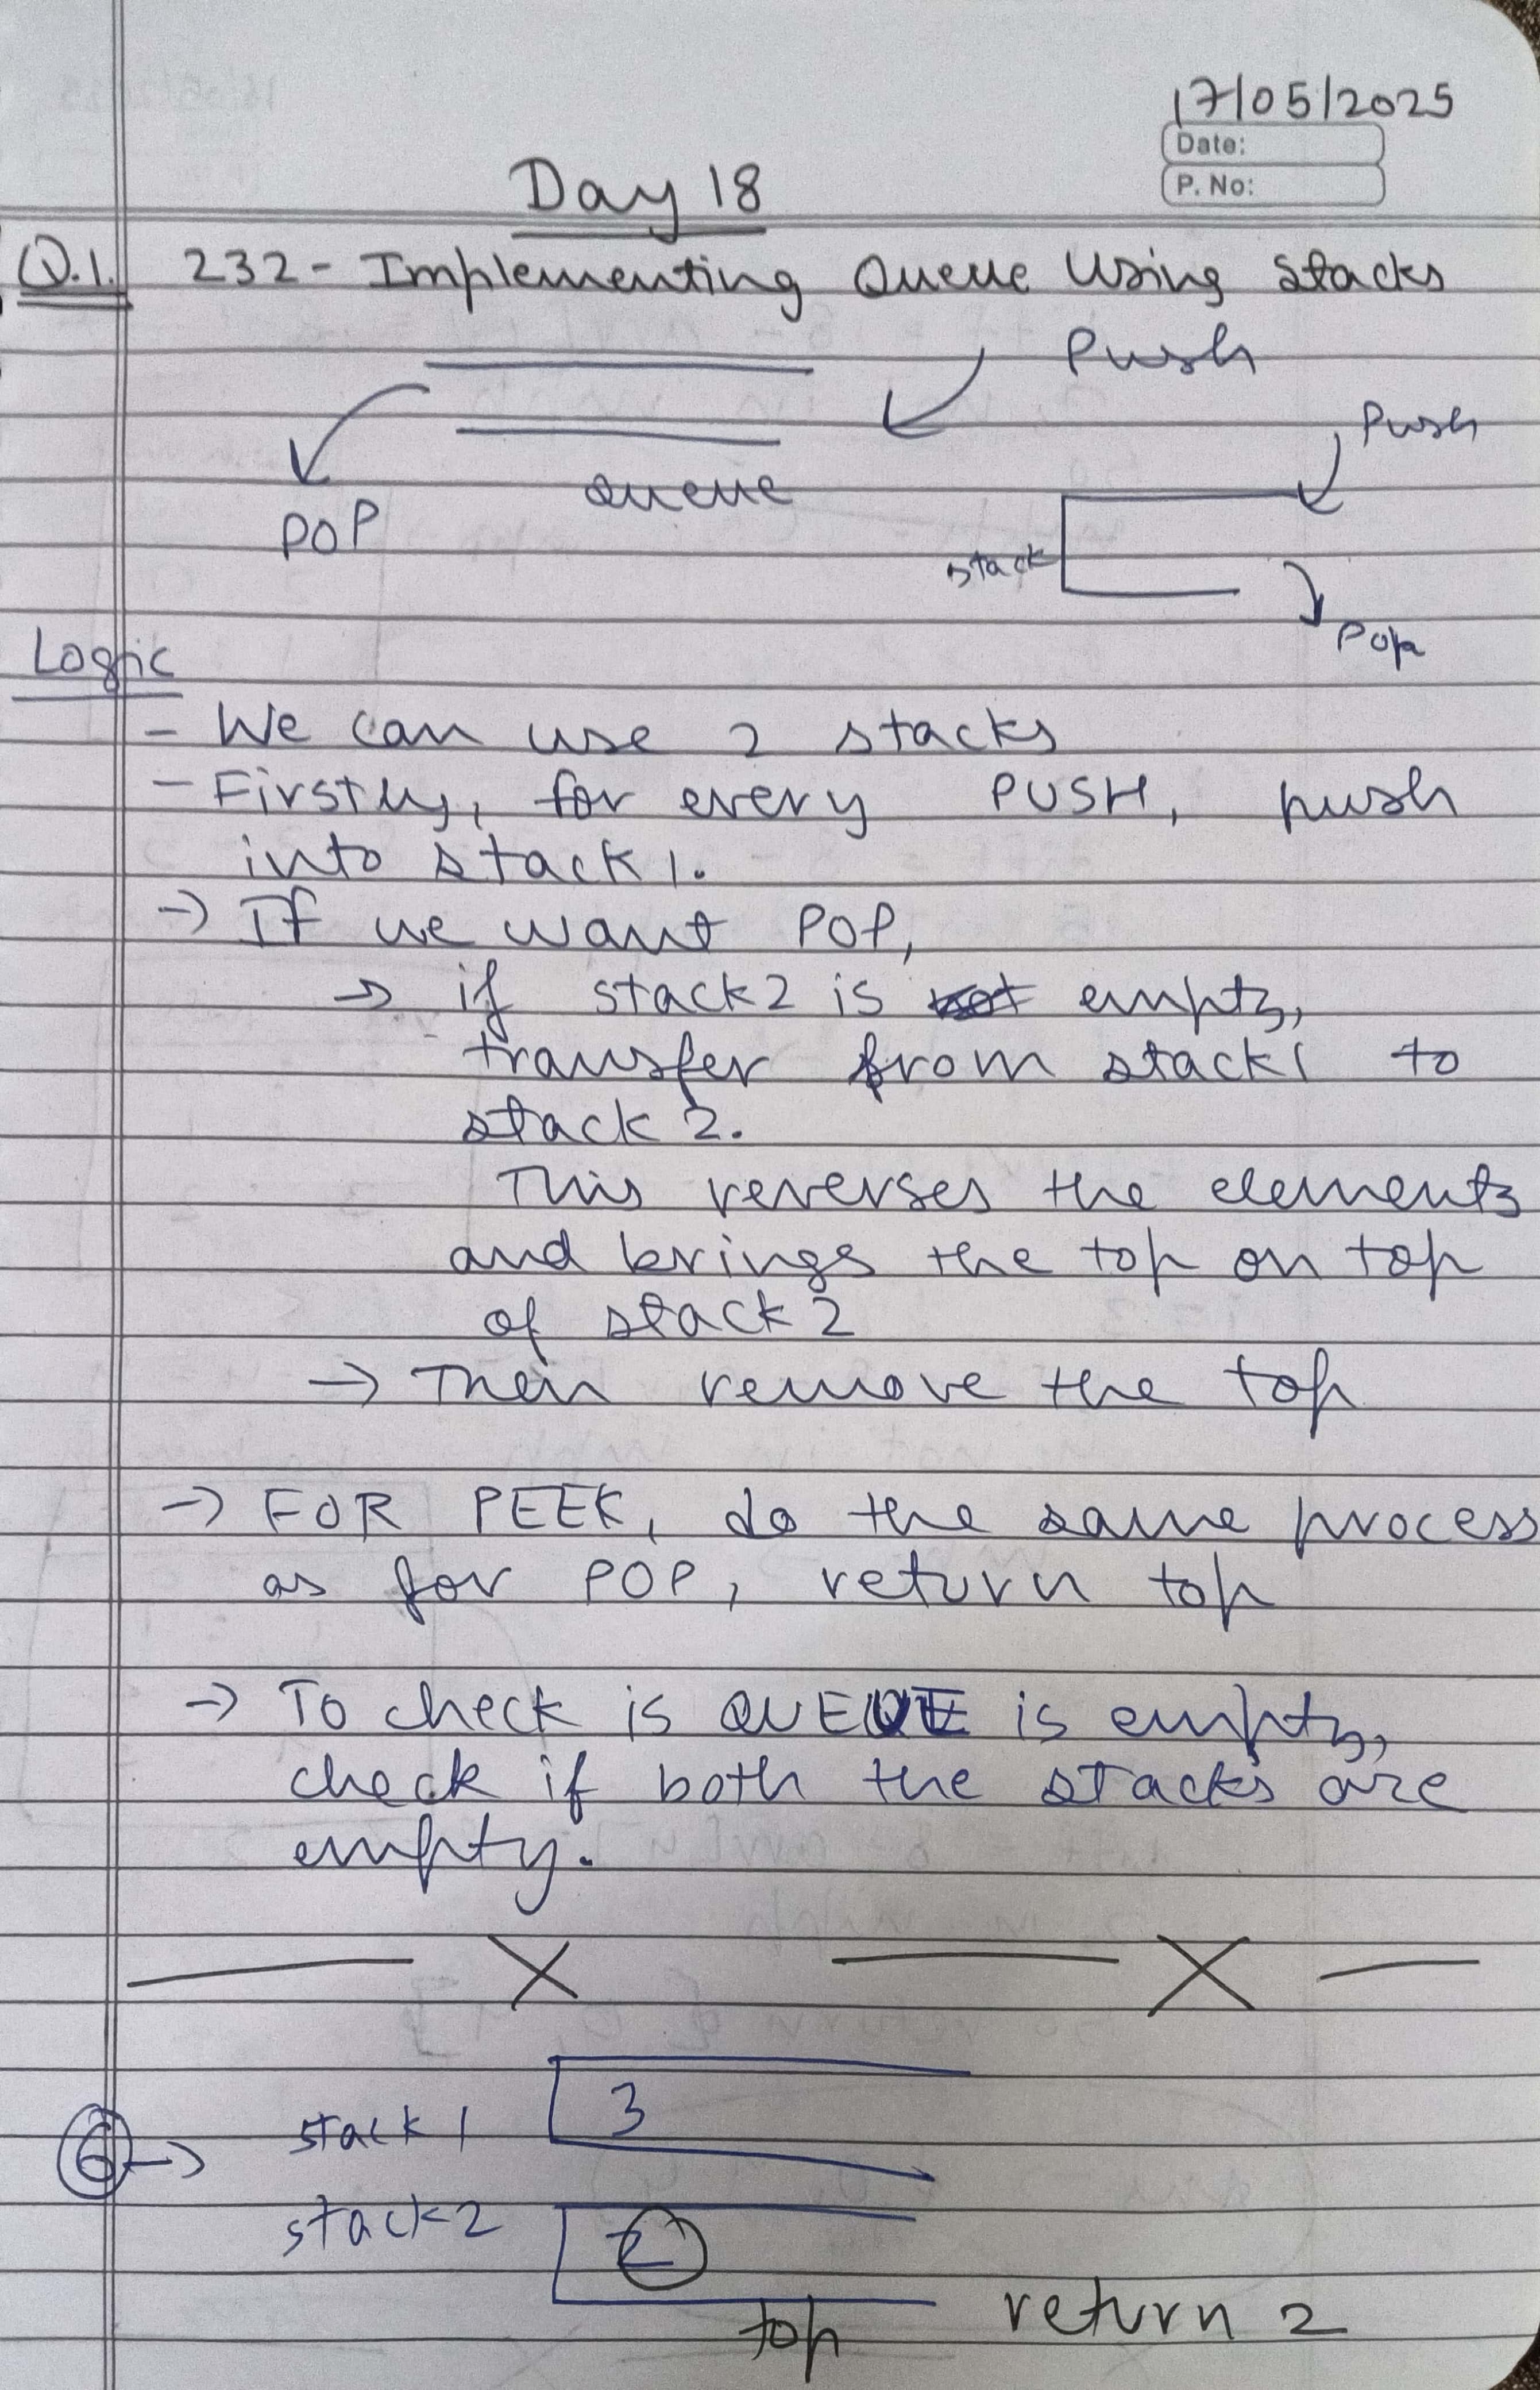 17/05/2025
Date:
P. No:
Day 18
Q.1. 232 - Implementing Queue Using Stacks
Push
Push
POP
Queue
stack
Pop
Logic
- We can use 2 stacks
- Firstly, for every PUSH, push
into stack 1.
→ If we want POP,
→ if stack2 is not empty,
transfer from stack1 to
stack 2.
This reverses the elements
and brings the top on top
of stack 2
→ Then remove the top
→ FOR PEEK, do the same process
as for POP, return top
→ To check is QUEUE is empty,
check if both the stacks are
empty.
6 →
stack 1
3
stack 2
2
top
return 2